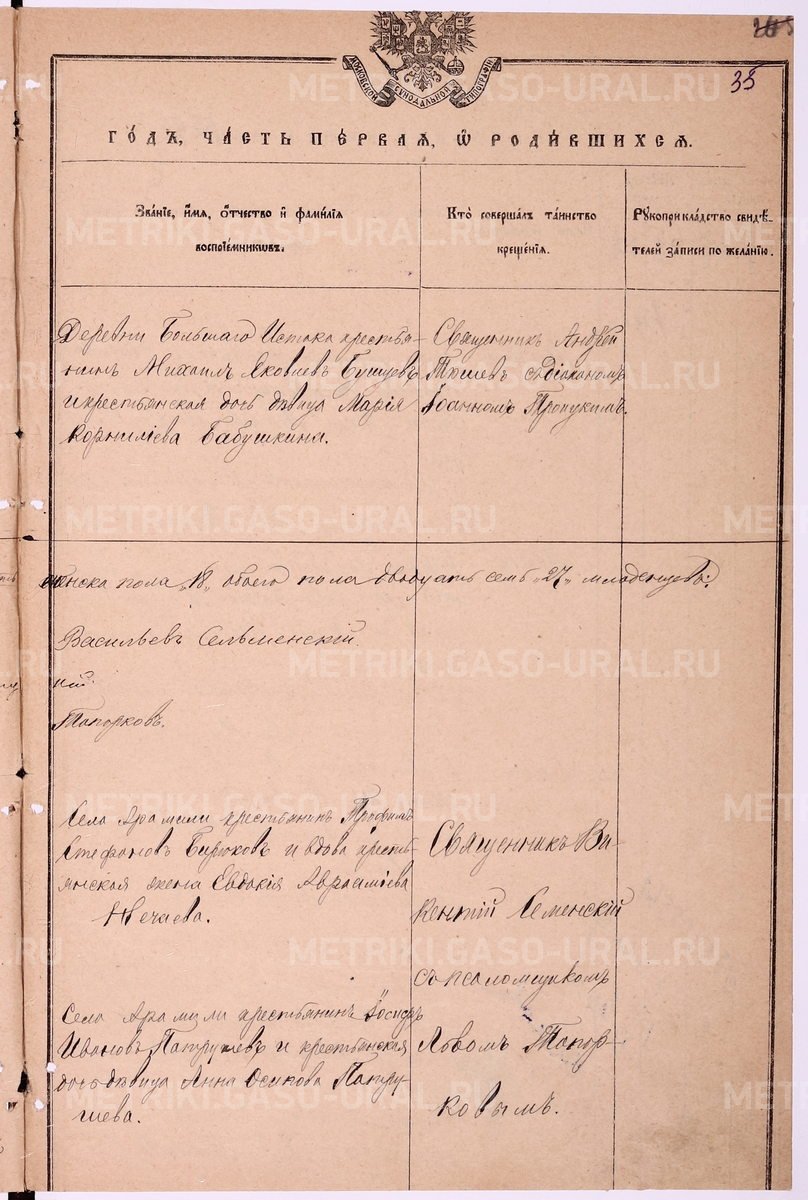 35
МОСКОВСКОЙ СѴНОДАЛЬНОЙ ТИПОГРАФІИ
ГО́ДЪ, ЧА́СТЬ ПЕ́РВАЯ, Ѡ҆ РОДИ́ВШИХСЯ.
Зва́нїе, и҆́мя, ѻ҆́тчество и҆ фами́лїя
воспрїе́мникѡвъ.
Кто̀ соверша́лъ та́инство
креще́нїя.
Рꙋкоприкла́дство свидѣ́-
телей за́писи по жела́нїю.
Деревни Большаго Истока крестья-
нинъ Михаилъ Яковлевъ Бушуевъ
и крестьянская дочь дѣвица Марія
Корниліева Бабушкина.
Священникъ Андрей
Тюшевъ съ діакономъ
Іоанномъ
женска пола "18" обоего пола двадцать семь "27" младенцевъ:
Васильевъ Сельменскій.
кій.
Топорковъ.
Села Арамили крестьянинъ Трофимъ
Стефановъ Бирюковъ и вдова кресть-
янская жена Евдокія Аврааміева
Нечаева.
Священникъ Ви-
кентій Селменскій
съ псаломщикомъ
Львомъ Топор-
ковымъ.
Села Арамили крестьянинъ Іосифъ
Ивановъ Патрушевъ и крестьянская
дочь дѣвица Анна Осипова Патру-
шева.
METRIKI.GASO-URAL.RU